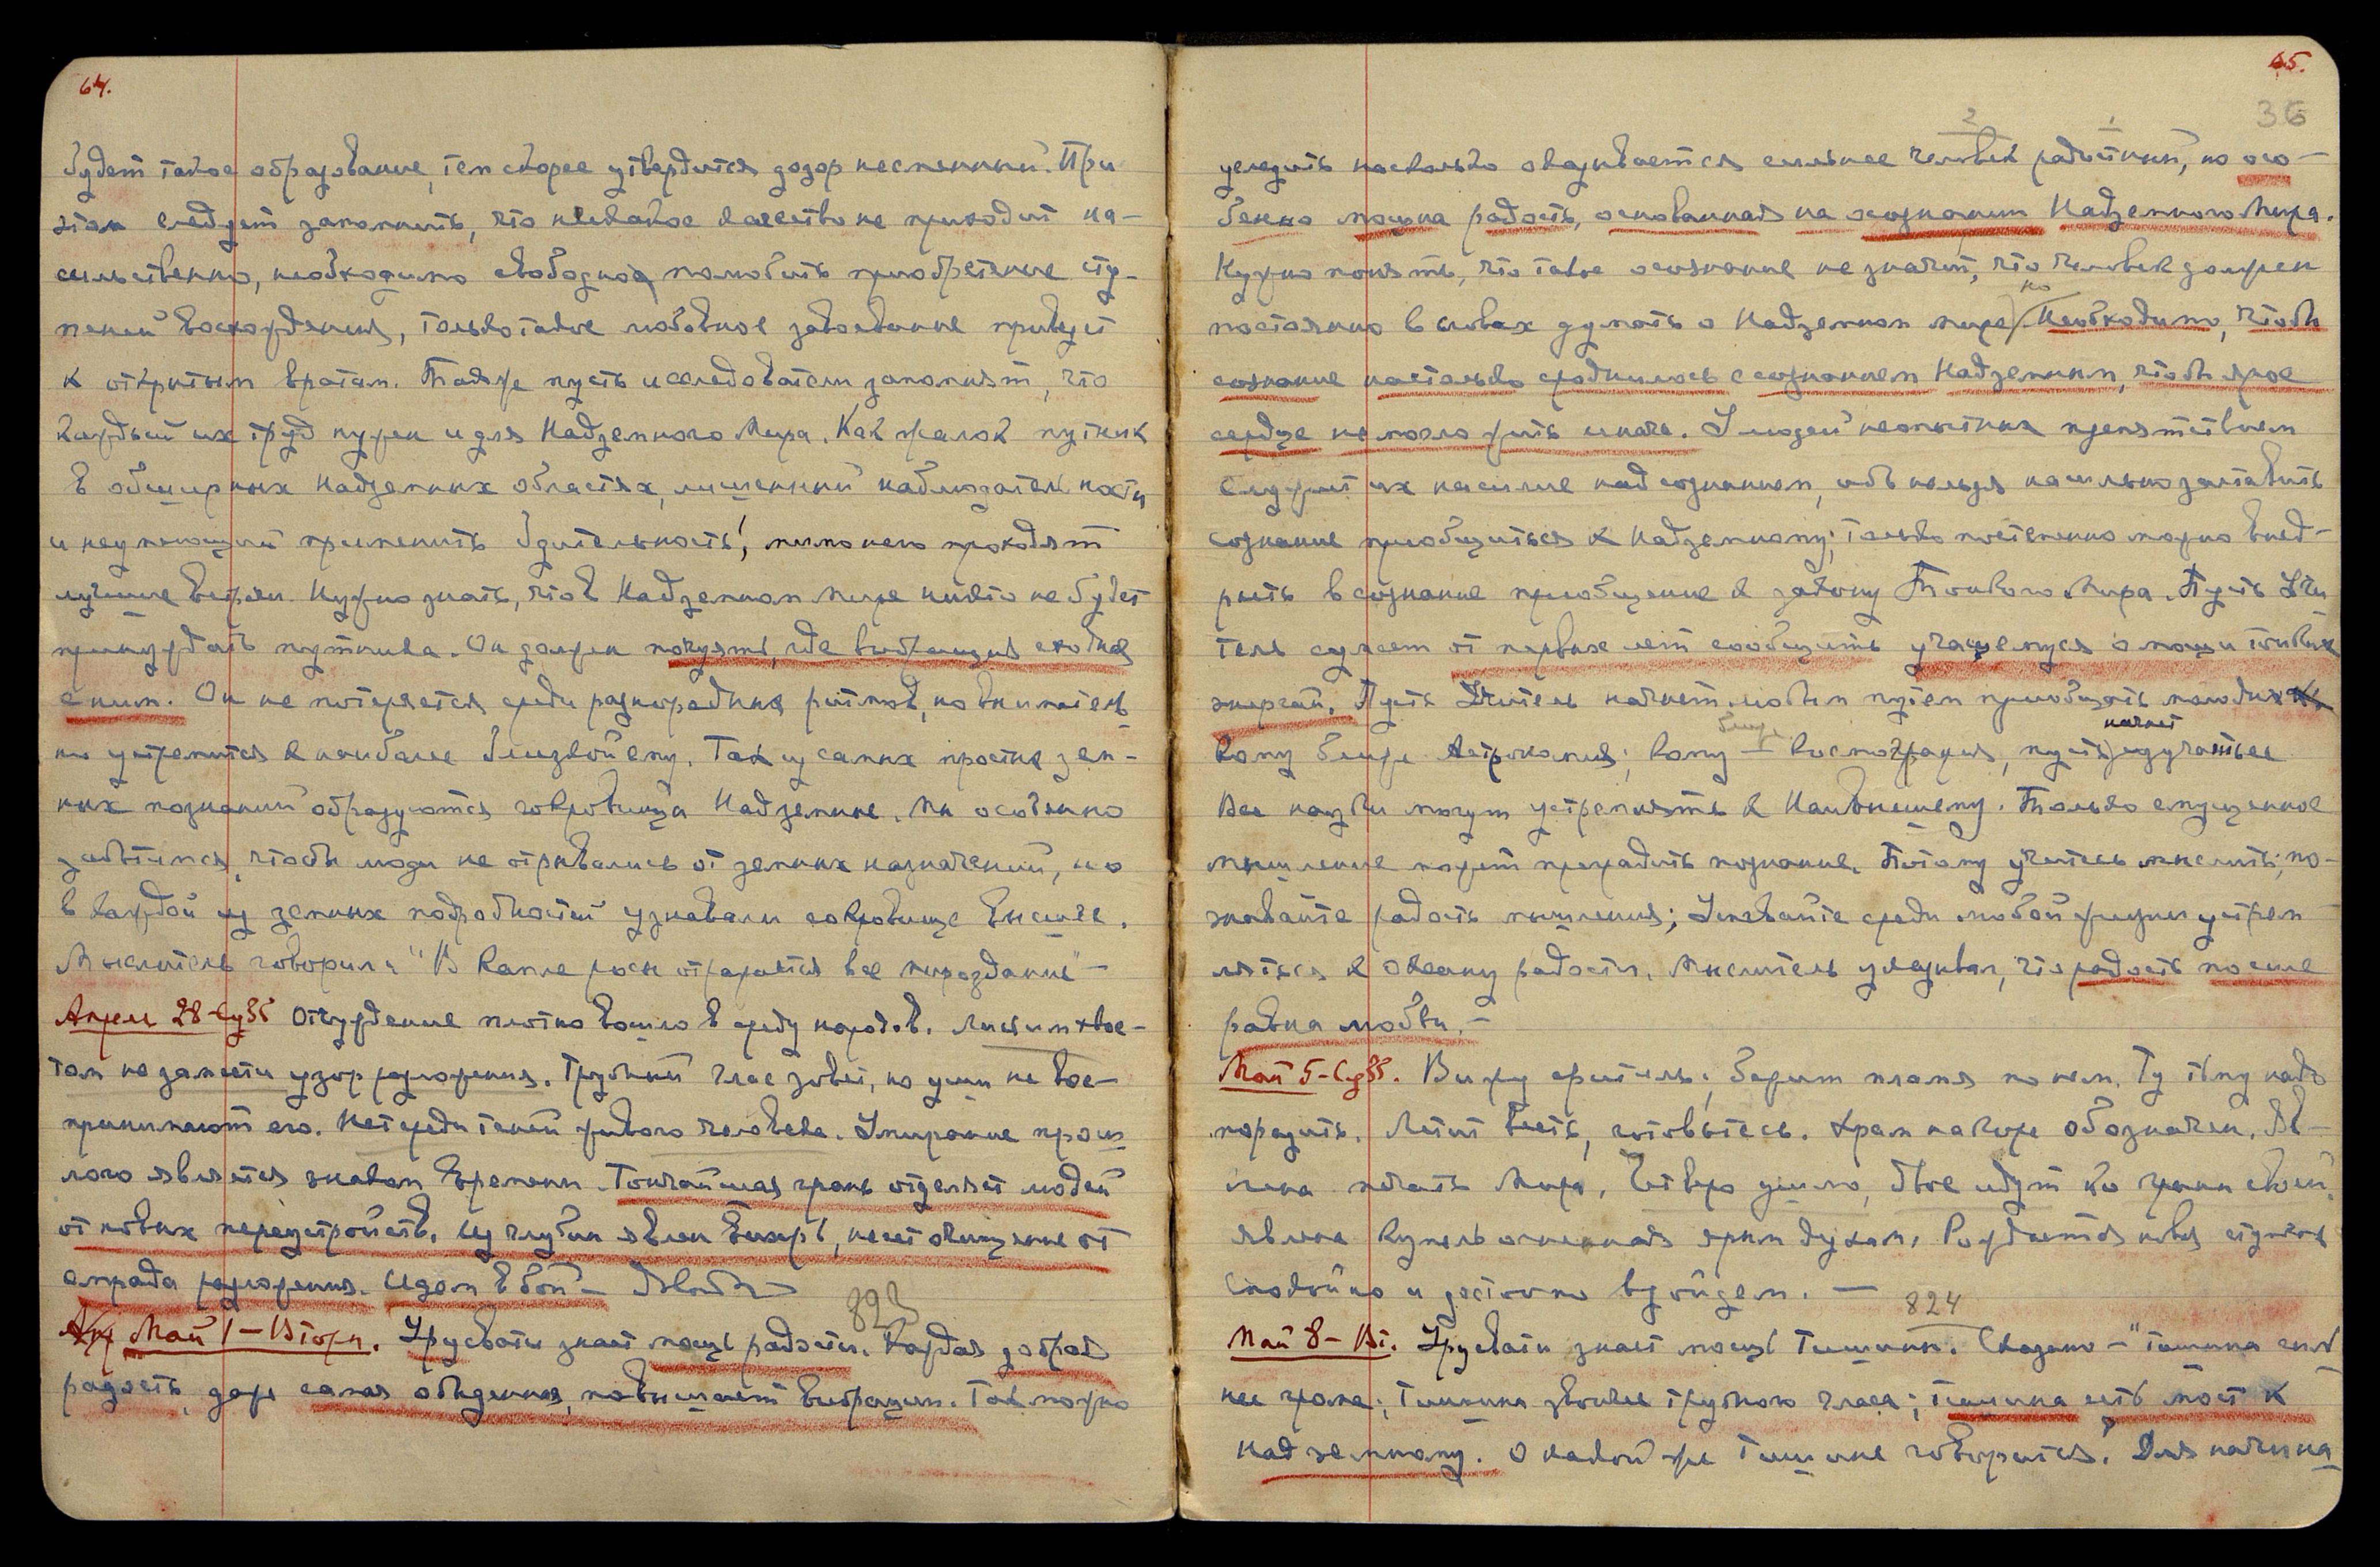 64.
будет такое образование, тем скорее утвердится дозор несменный. При
этом следует запомнить, что никакое качество не приходит на-
сильственно, необходимо свободно полюбить приобретение сту-
пеней восхождения, только такое любовное завоевание приведет
к открытым вратам. Также пусть исследователи запомнят, что
каждый их труд нужен и для Надземного Мира. Как жалок путник
в обширных Надземных областях, лишенный наблюдательности
и неумеющий применить бдительность! мимо него проходят
лучшие вехи. Нужно знать, что в Надземном Мире никто не будет
принуждать путника. Он должен почуять, где вибрация сходная
с ним. Он не потеряется среди разнородных ритмов, но вниматель
но устремится к наиболее близкой ему. Так из самых простых зем-
ных познаний образуются сокровища Надземные. Мы особенно
заботимся, чтобы люди не отрывались от земных назначений, но
в каждой из земных подробностей узнавали сокровище высшее.
Мыслитель говорил: "В капле росы отражается все мироздание" —
Апрель 28 - Суб Отчуждение плотно вошло в среду народов. Лисьим хвос-
том не замести узор разложения. Трубный глас зовет, но уши не вос-
принимают его. Нет среди теней живого человека. Умирание прош
лого является знаком времени. Тончайшая грань отделяет людей
от новых переустройств. Из глубин явлен вихрь, несет очищение от
смрада разложения. Идем в бой —
823
Май 1 - Вторн. Урусвати знает мощь радости. Каждая добрая
радость, даже самая обыденная, повышает вибрации. Так можно
65.
36
2 1
уследить насколько оказывается сильнее человек радостный, но осо-
бенно мощна радость, основанная на осознании Надземного Мира.
Нужно понять, что такое осознание не значит, что человек должен
но
постоянно в словах думать о Надземном мире / Необходимо, чтобы
сознание настолько сроднилось с сознанием Надземным, чтобы ярое
сердце не могло жить иначе. У людей неопытных препятствием
служит их насилие над сознанием, ибо нельзя насильно заставить
сознание приобщиться к Надземному; только постепенно можно внед-
рить в сознание приобщение к закону Тонкого Мира. Пусть Учи
тель сумеет от первых лет сообщить учащемуся о мощи тонких
энергий. Пусть Учитель начнет любым путем приобщать молодых
ближе начнет
Кому ближе Астрономия; кому — космография, пусть изучать ее
Все науки могут устремлять к Наивысшему. Только смущенное
мышление может преградить познание. Потому учитесь мыслить; по-
знавайте радость мышления; Успевайте среди любой жизни устрем
ляться к океану радости. Мыслитель указывал, что радость по силе
равна любви. —
Май 5 - Суб. Вижу зрители; бежит пламя по ним. Ту тьму надо
поразить. Летит весть, готовьтесь. Храм на Горе обозначен. Яв-
лена печать Мира, Четверо ушло, двое идут ко грани своей.
явлена Купель огненная ярым духам, Рождается новая ступень
Спокойно и достойно взойдем. —
824
Май 8 - Вт. Урусвати знает мощь Тишины. Сказано — "тишина силь
нее грома; Тишина звонче трубного гласа; тишина есть мост к
Надземному. О какой же Тишине говорится? Для начина